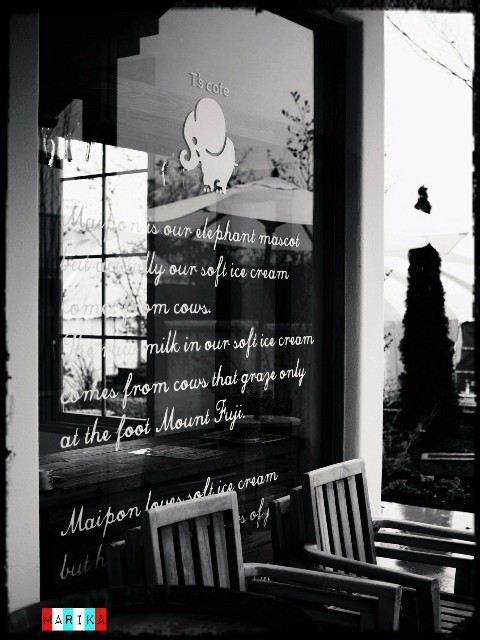 T's cafe
Maipon is our elephant mascot
but actually our soft ice cream
comes from cows.
The raw milk in our soft ice cream
comes from cows that graze only
at the foot Mount Fuji.
Maipon loves soft ice cream
but h
MARIKA